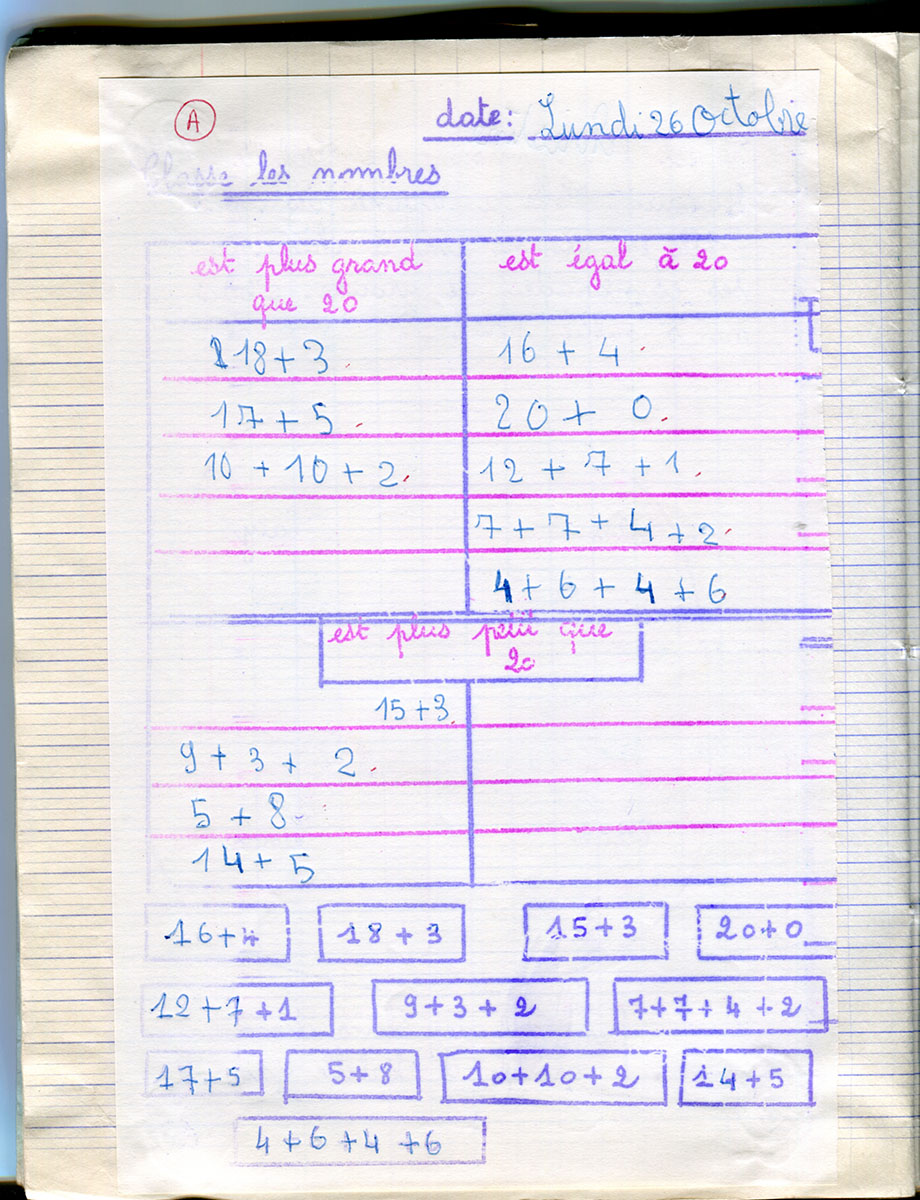 A
date: Lundi 26 Octobre
Classe les nombres
est plus grand
que 20
est égal à 20
18+3
16 + 4
17 + 5
20 + 0
10 + 10 + 2
12 + 7 + 1
7 + 7 + 4 + 2
4 + 6 + 4 + 6
est plus petit que
20
15+3
9 + 3 + 2
5 + 8
14 + 5
16+4 18+3 15+3 20+0
12+7+1 9+3+2 7+7+4+2
17+5 5+8 10+10+2 14+5
4+6+4+6